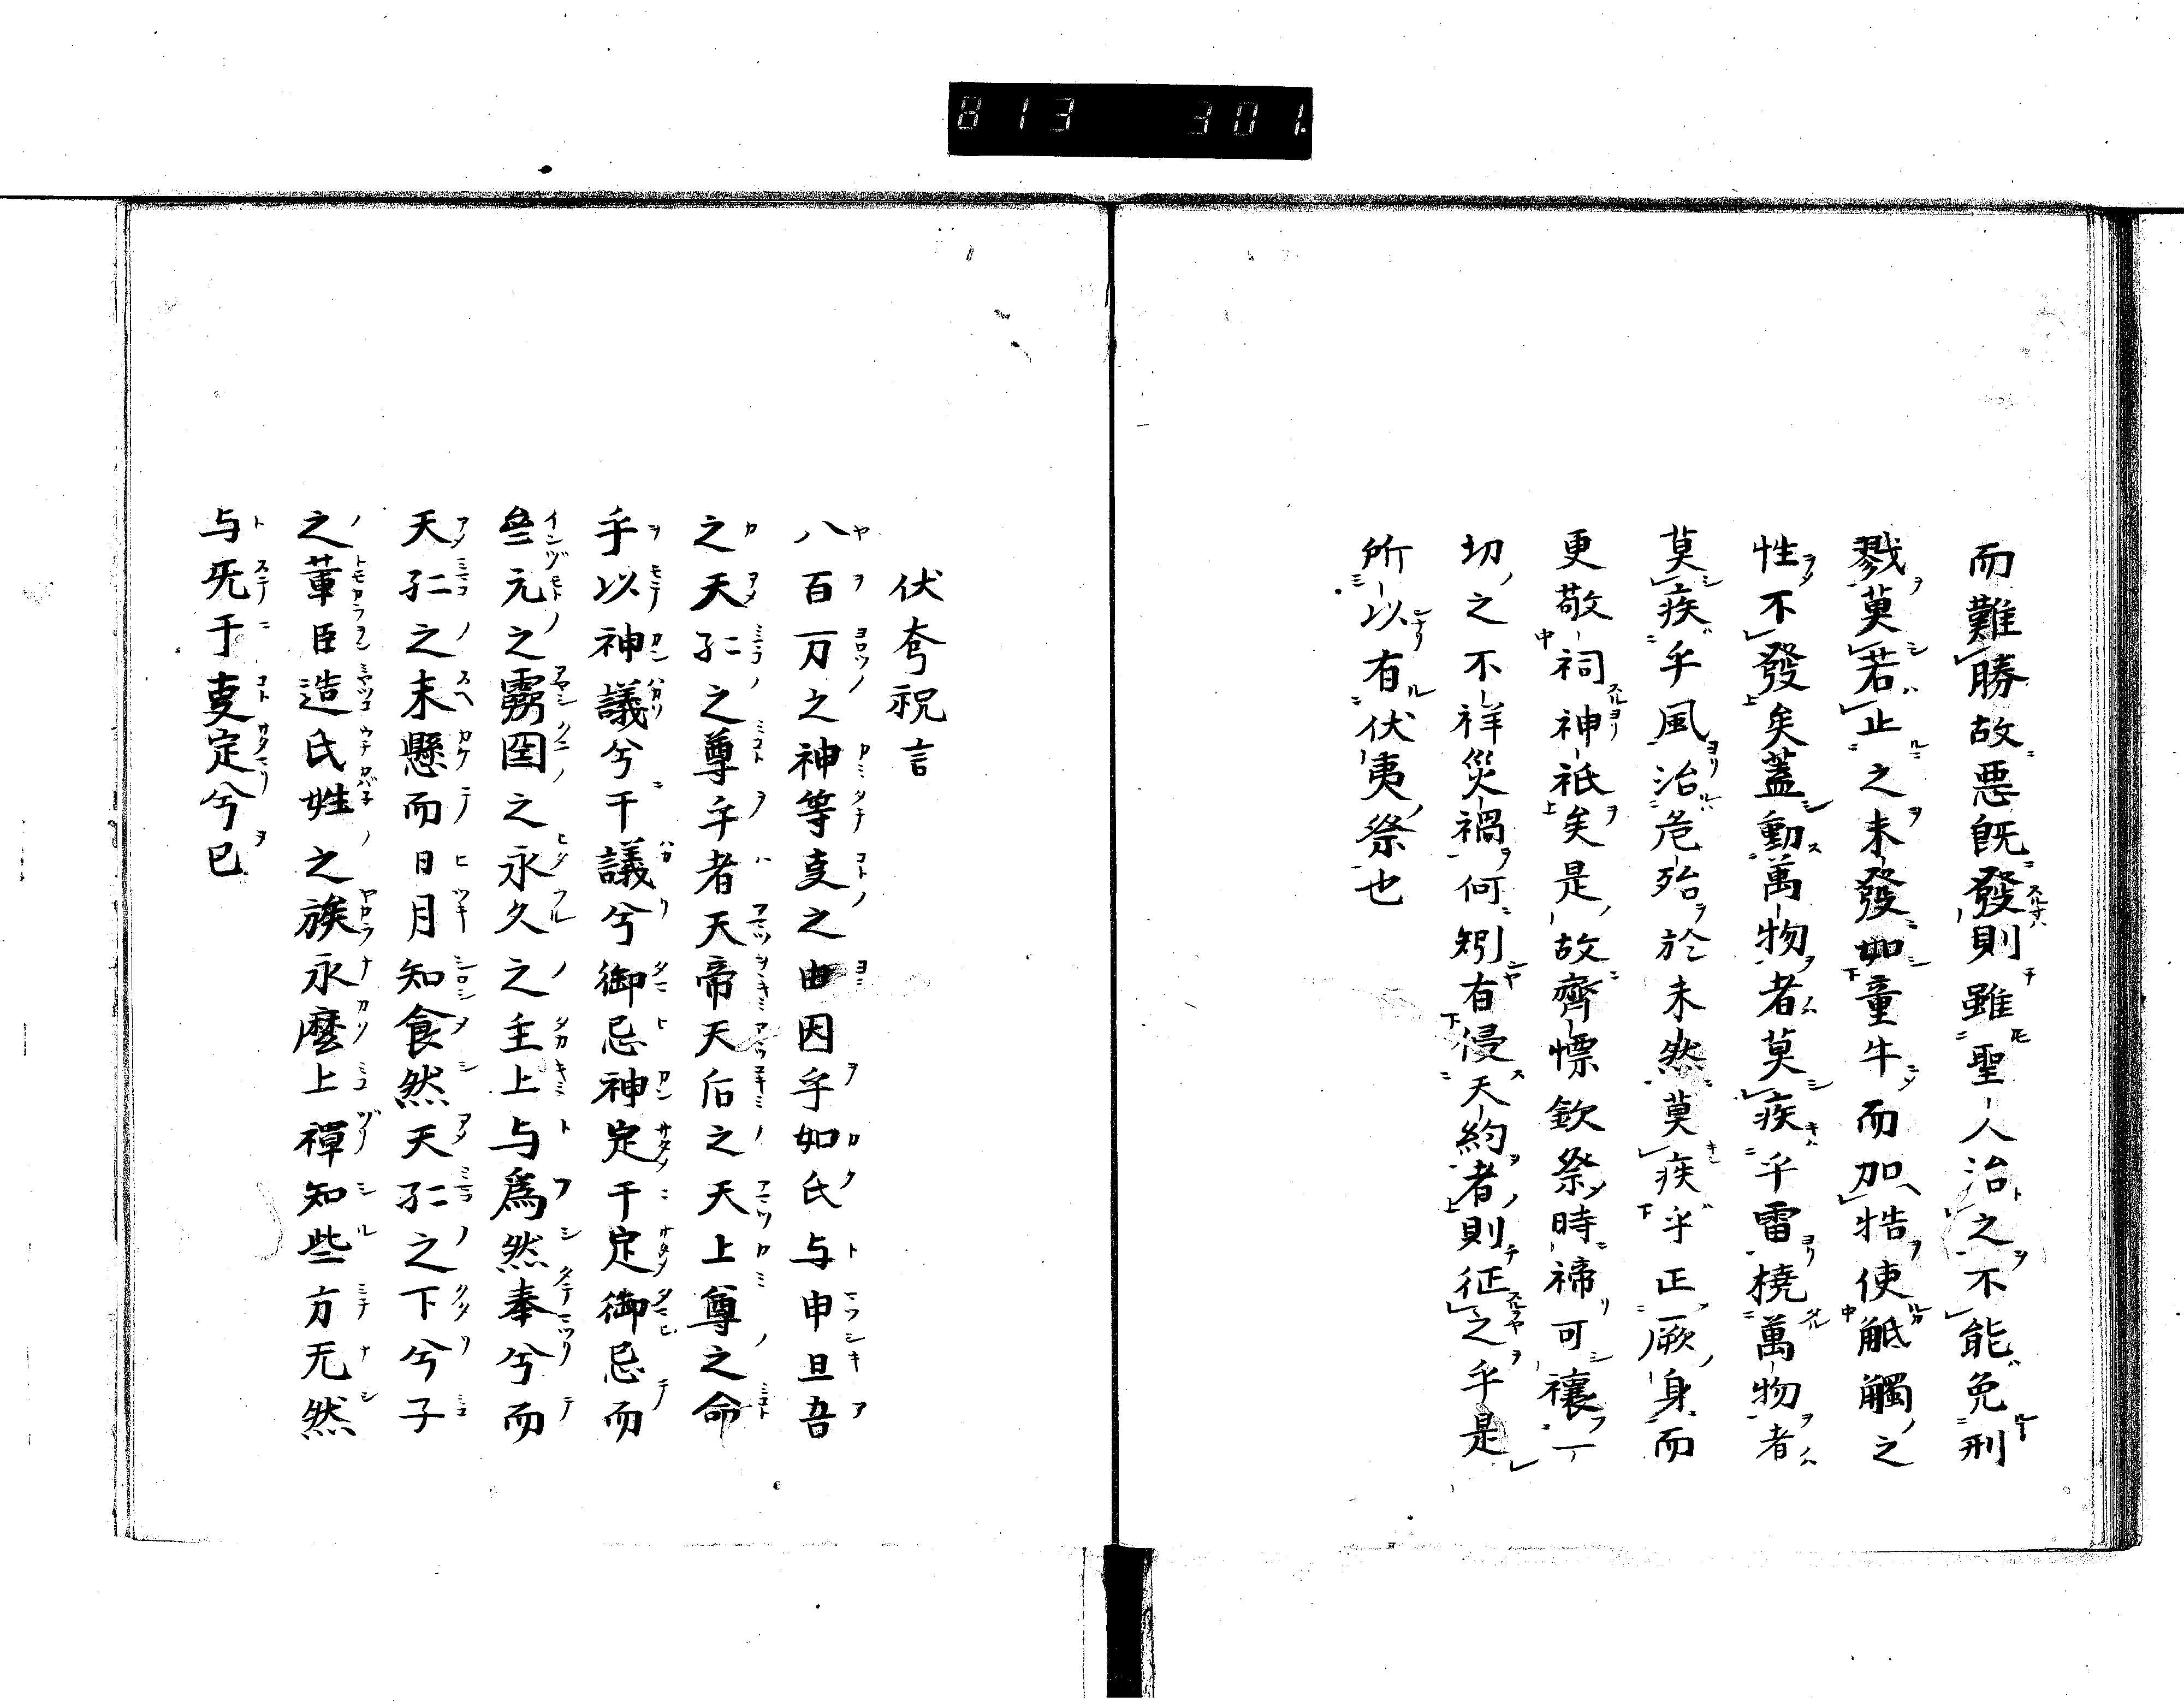 813 301.
而難勝故惡既發則雖聖人治之不能免刑
戮莫若止之未發如童牛而加牿使觝觸之
性不發矣蓋動萬物者莫疾乎雷橈萬物者
莫疾乎風治危殆於未然莫疾乎正厥身而
更敬祠神祇矣是故齊慓欽祭時禘可禳一
切之不祥災禍何矧有侵天約者則征之乎是
所以有伏夷祭也
伏夸祝言
八百万之神等叓之由因乎如氏与申旦吾
之天孔之尊乎者天帝天后之天上尊之命
乎以神議兮干議兮御忌神定干定御忌而
元之靈国之永久之主上与爲然奉兮而
天孔之末懸而日月知食然天孔之下兮子
之輩臣造氏姓之族永麼上禪知些方无然
与旡于叓定兮已